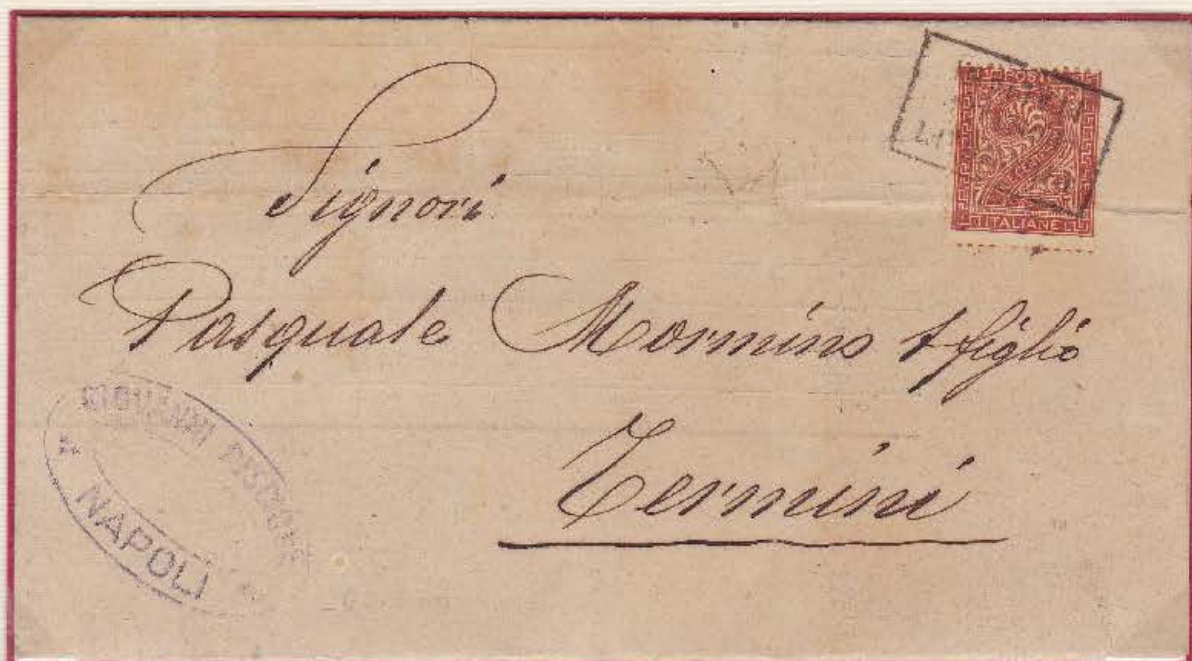 POSTE
2
ITALIANE
Signori
Pasquale Mormino & figlio
Termini
GIOVANNI
NAPOLI